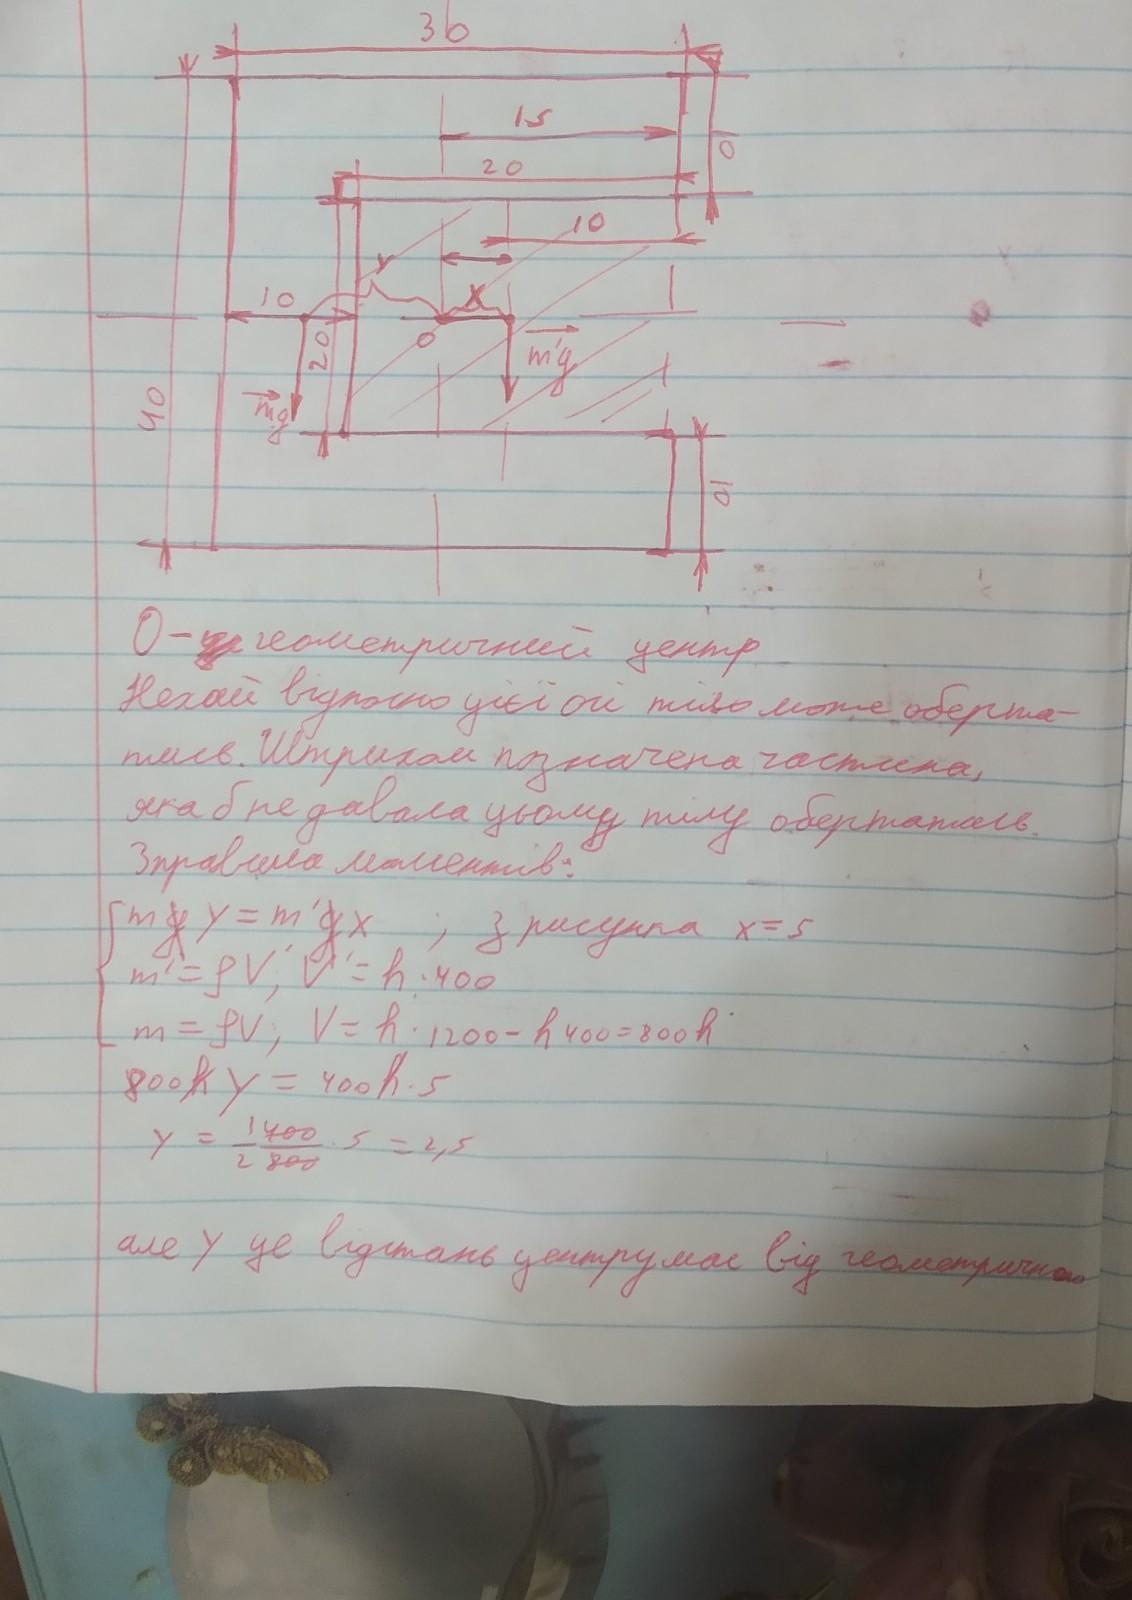 30
15
10
20
10
10
20
40
y
x
O
mg
m'g
10
О - геометричний центр
Нехай відносно цієї осі тіло може оберта-
тись. Штрихом позначена частина,
яка б не давала цьому тілу обертатись.
З правила моментів:
mg y = m'g x ; з рисунка x = 5
m' = ρV'; V' = h · 400
m = ρV; V = h · 1200 - h 400 = 800h
800h y = 400h · 5
y = 1 400 / 2 800 · 5 = 2,5
але y це відстань центру мас від геометричного